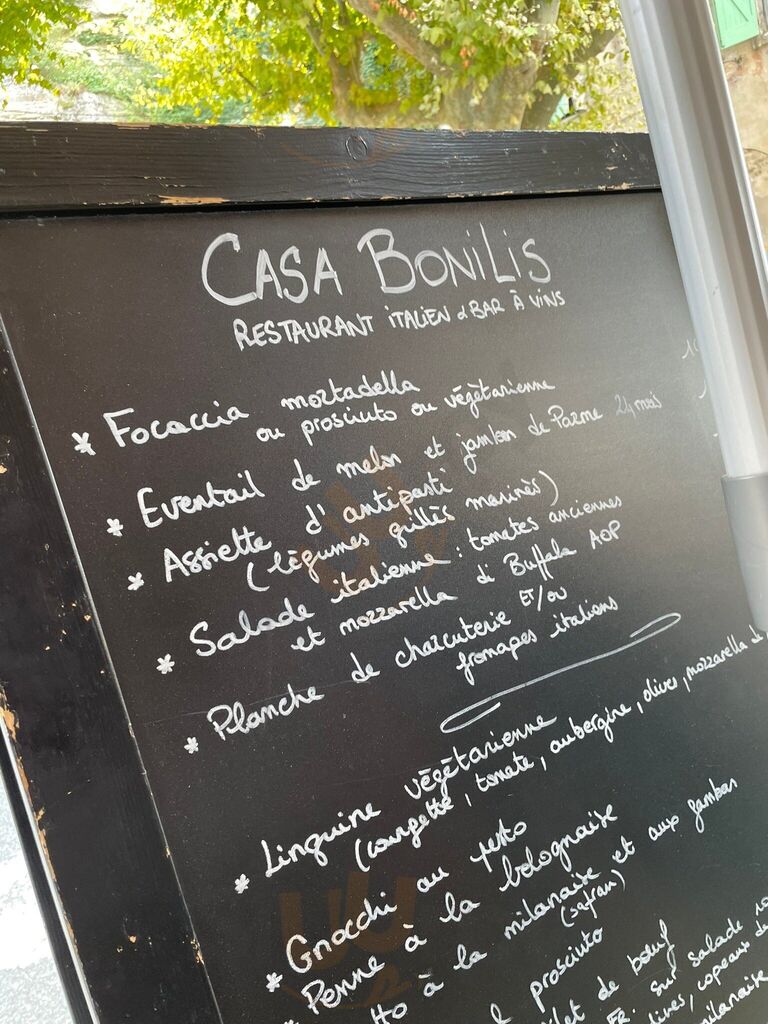 CASA BONILIS
RESTAURANT ITALIEN & BAR À VINS
* Focaccia mortadella
ou prosciuto ou végétarienne
* Eventail de melon et jambon de Parme 24 mois
* Assiette d'antipasti
(légumes grillés marinés)
* Salade italienne : tomates anciennes
et mozzarella di Buffala AOP
* Planche de charcuterie ET/OU
fromages italiens
* Linguine végétarienne
(courgette, tomate, aubergine, olives, mozzarella di
* Gnocchi au pesto
* Penne à la bolognaise
à la milanaise et aux jambon
(safran)
prosciuto
de bœuf
sur salade
olives, copeaux de
milanaise